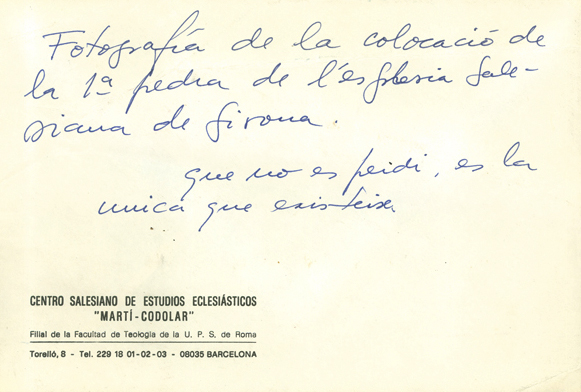 Fotografía de la colocació de
la 1ª pedra de l'esglesia Sale-
siana de Girona.
que no es perdi, es la
unica que existeixe
CENTRO SALESIANO DE ESTUDIOS ECLESIÁSTICOS
"MARTÍ-CODOLAR"
Filial de la Facultad de Teología de la U. P. S. de Roma
Torelló, 8 - Tel. 229 18 01-02-03 - 08035 BARCELONA